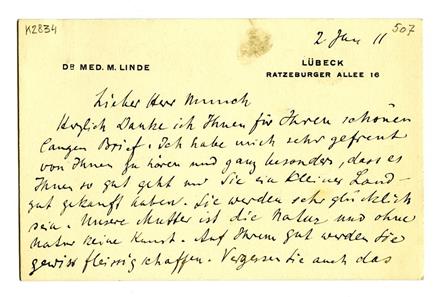 K2834
507
2 Jan 11
DR MED. M. LINDE
LÜBECK
RATZEBURGER ALLEE 16
Lieber Herr Munch
Herzlich Danke ich Ihnen für Ihren schönen
langen Brief. Ich habe mich sehr gefreut
von Ihnen zu hören und ganz besonders, dass es
Ihnen so gut geht und Sie ein kleines Land-
gut gekauft haben. Sie werden sehr glücklich
sein. Unsere Mutter ist die Natur und ohne
Natur keine Kunst. Auf Ihrem gut werden Sie
gewiss fleissig schaffen. Vergessen Sie auch das